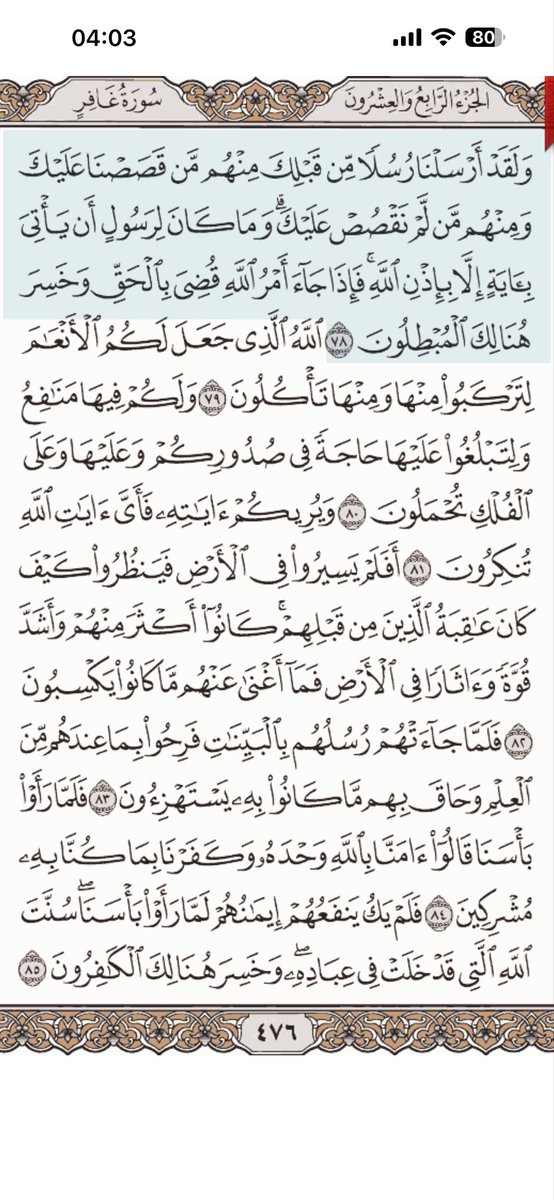 04:03
80
الجُزْءُ الرَّابِعُ وَالعِشْرُونَ
سُورَةُ غَافِرٍ
وَلَقَدْ أَرْسَلْنَا رُسُلًا مِّن قَبْلِكَ مِنْهُم مَّن قَصَصْنَا عَلَيْكَ
وَمِنْهُم مَّن لَّمْ نَقْصُصْ عَلَيْكَۗ وَمَا كَانَ لِرَسُولٍ أَن يَأْتِىَ
بِـَٔايَةٍ إِلَّا بِإِذْنِ ٱللَّهِۚ فَإِذَا جَآءَ أَمْرُ ٱللَّهِ قُضِىَ بِٱلْحَقِّ وَخَسِرَ
هُنَالِكَ ٱلْمُبْطِلُونَ ٧٨ ٱللَّهُ ٱلَّذِى جَعَلَ لَكُمُ ٱلْأَنْعَٰمَ
لِتَرْكَبُوا۟ مِنْهَا وَمِنْهَا تَأْكُلُونَ ٧٩ وَلَكُمْ فِيهَا مَنَٰفِعُ
وَلِتَبْلُغُوا۟ عَلَيْهَا حَاجَةً فِى صُدُورِكُمْ وَعَلَيْهَا وَعَلَى
ٱلْفُلْكِ تُحْمَلُونَ ٨٠ وَيُرِيكُمْ ءَايَٰتِهِۦ فَأَىَّ ءَايَٰتِ ٱللَّهِ
تُنكِرُونَ ٨١ أَفَلَمْ يَسِيرُوا۟ فِى ٱلْأَرْضِ فَيَنظُرُوا۟ كَيْفَ
كَانَ عَٰقِبَةُ ٱلَّذِينَ مِن قَبْلِهِمْۚ كَانُوٓا۟ أَكْثَرَ مِنْهُمْ وَأَشَدَّ
قُوَّةً وَءَاثَارًا فِى ٱلْأَرْضِ فَمَآ أَغْنَىٰ عَنْهُم مَّا كَانُوا۟ يَكْسِبُونَ
٨٢ فَلَمَّا جَآءَتْهُمْ رُسُلُهُم بِٱلْبَيِّنَٰتِ فَرِحُوا۟ بِمَا عِندَهُم مِّنَ
ٱلْعِلْمِ وَحَاقَ بِهِم مَّا كَانُوا۟ بِهِۦ يَسْتَهْزِءُونَ ٨٣ فَلَمَّا رَأَوْا۟
بَأْسَنَا قَالُوٓا۟ ءَامَنَّا بِٱللَّهِ وَحْدَهُۥ وَكَفَرْنَا بِمَا كُنَّا بِهِۦ
مُشْرِكِينَ ٨٤ فَلَمْ يَكُ يَنفَعُهُمْ إِيمَٰنُهُمْ لَمَّا رَأَوْا۟ بَأْسَنَاۖ سُنَّتَ
ٱللَّهِ ٱلَّتِى قَدْ خَلَتْ فِى عِبَادِهِۦۖ وَخَسِرَ هُنَالِكَ ٱلْكَٰفِرُونَ ٨٥
٤٧٦